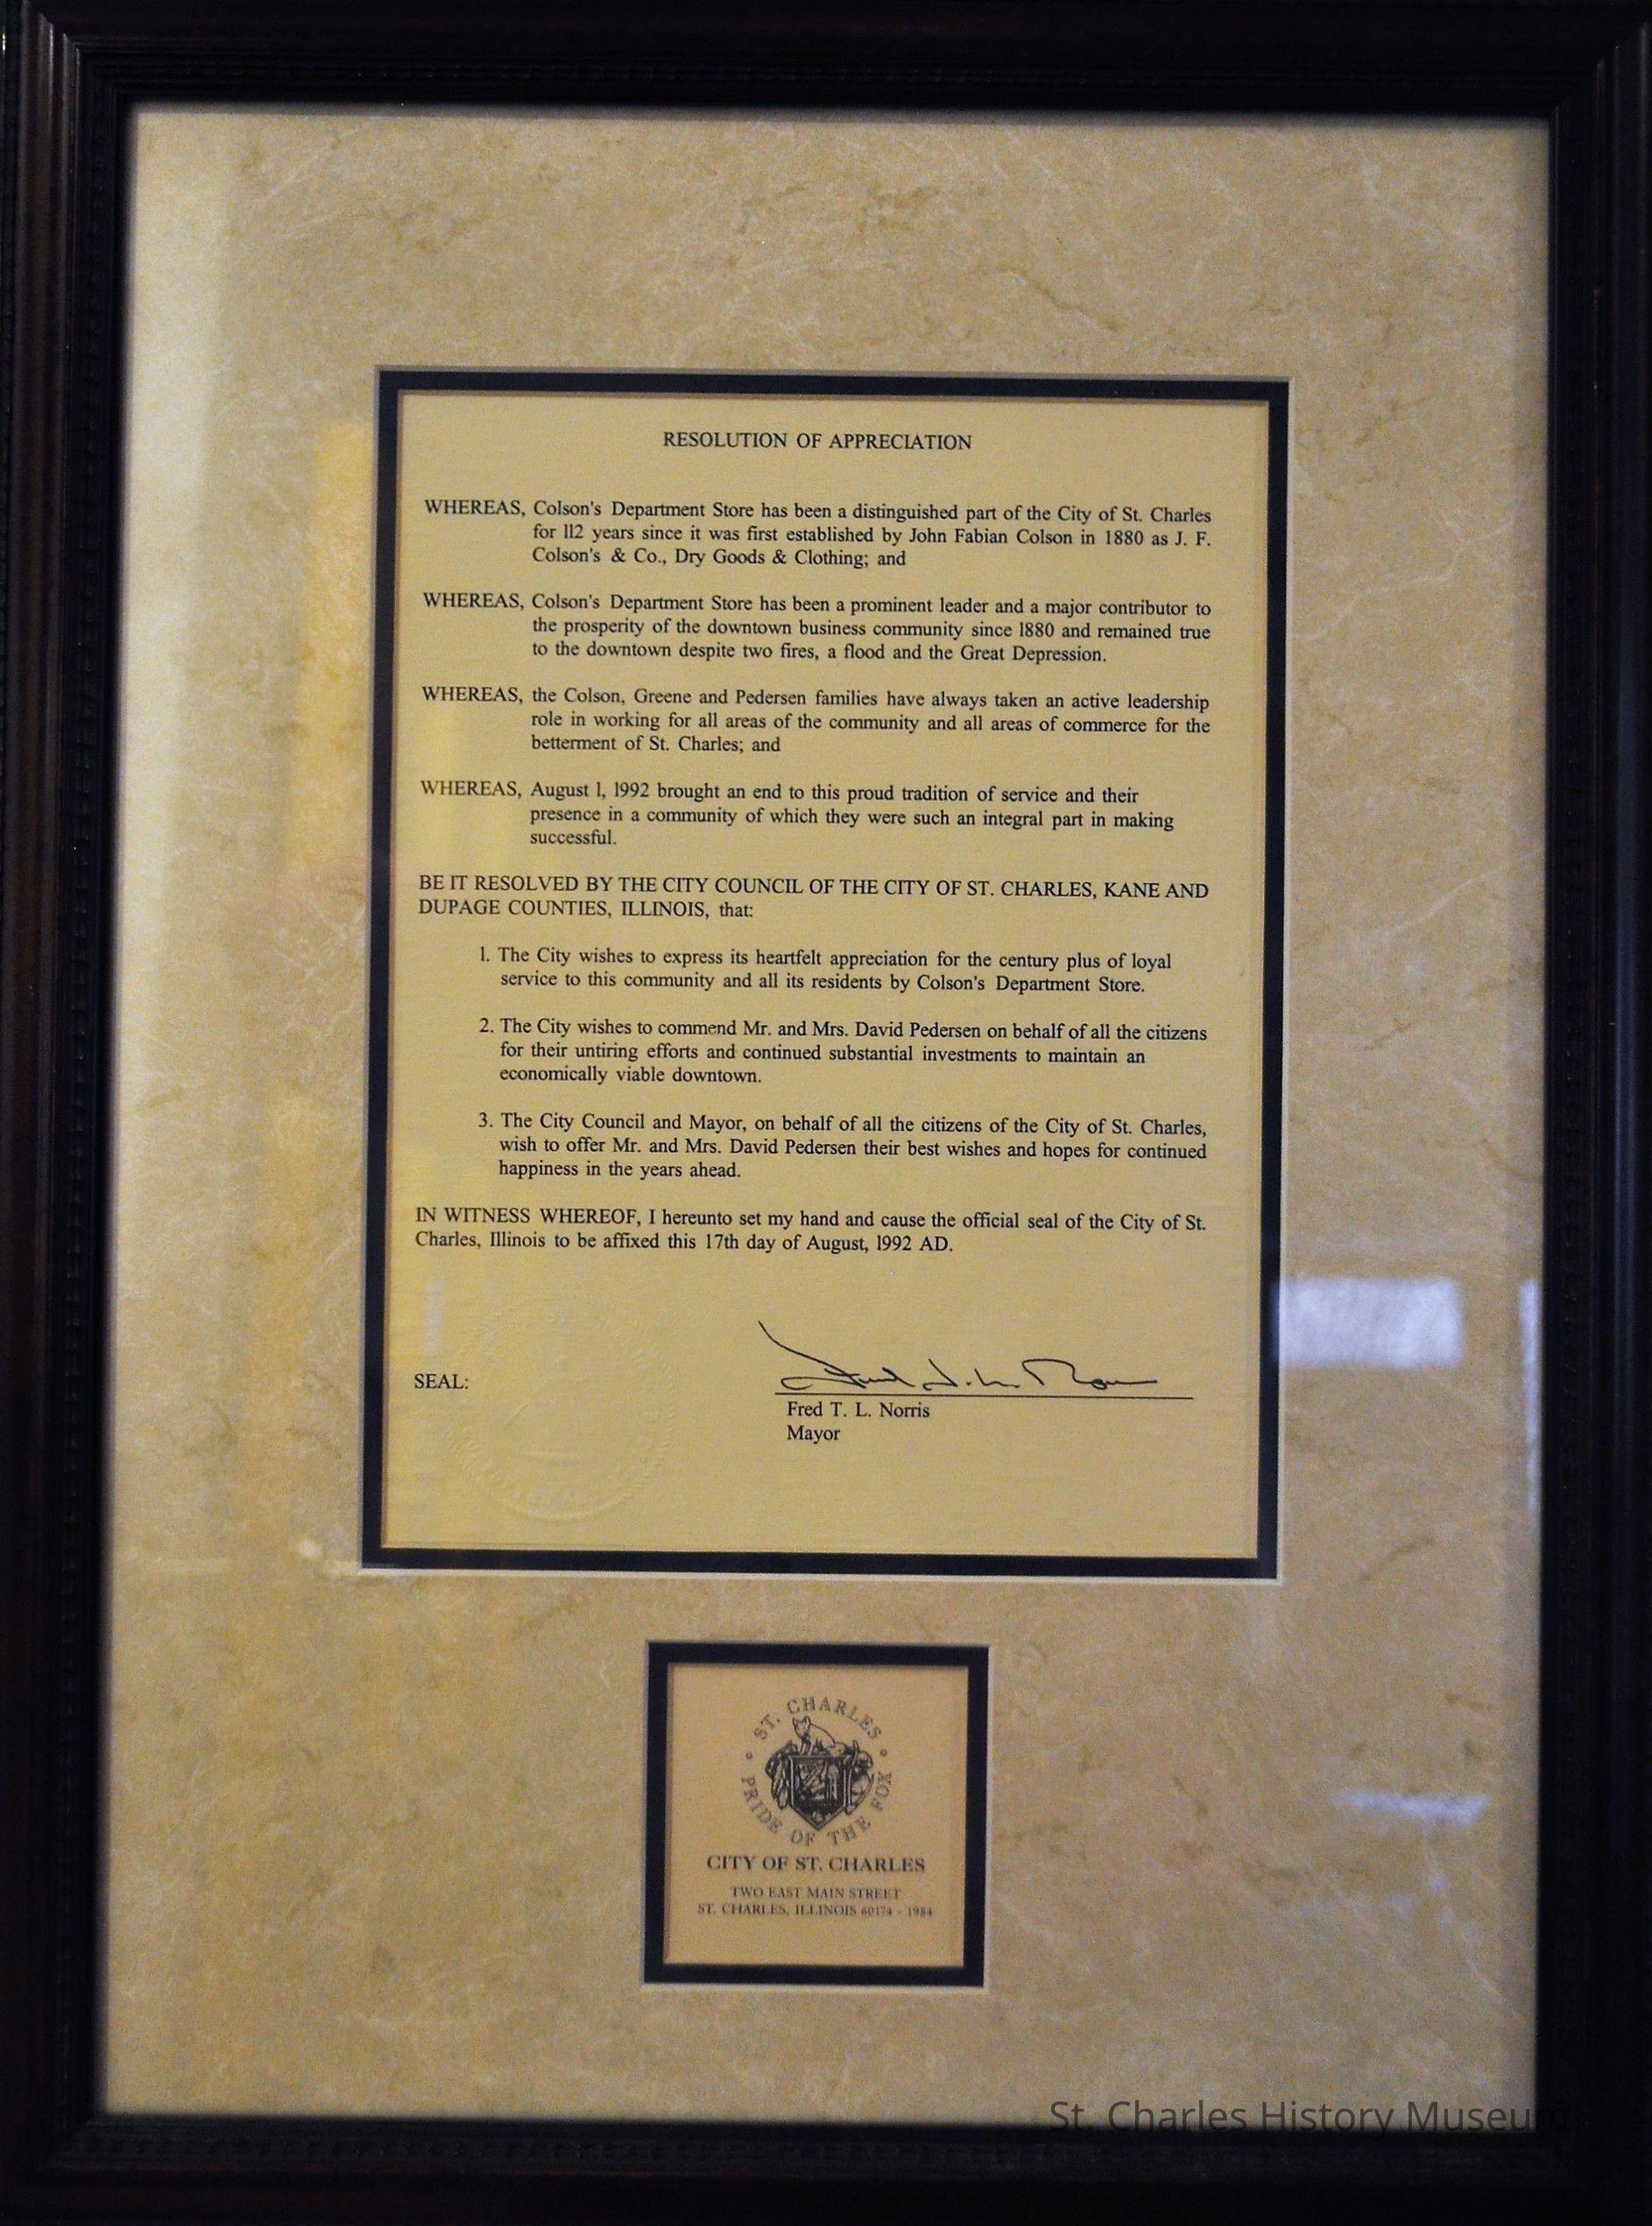 RESOLUTION OF APPRECIATION
WHEREAS, Colson's Department Store has been a distinguished part of the City of St. Charles
for 112 years since it was first established by John Fabian Colson in 1880 as J. F.
Colson's & Co., Dry Goods & Clothing; and
WHEREAS, Colson's Department Store has been a prominent leader and a major contributor to
the prosperity of the downtown business community since 1880 and remained true
to the downtown despite two fires, a flood and the Great Depression.
WHEREAS, the Colson, Greene and Pedersen families have always taken an active leadership
role in working for all areas of the community and all areas of commerce for the
betterment of St. Charles; and
WHEREAS, August 1, 1992 brought an end to this proud tradition of service and their
presence in a community of which they were such an integral part in making
successful.
BE IT RESOLVED BY THE CITY COUNCIL OF THE CITY OF ST. CHARLES, KANE AND
DUPAGE COUNTIES, ILLINOIS, that:
1. The City wishes to express its heartfelt appreciation for the century plus of loyal
service to this community and all its residents by Colson's Department Store.
2. The City wishes to commend Mr. and Mrs. David Pedersen on behalf of all the citizens
for their untiring efforts and continued substantial investments to maintain an
economically viable downtown.
3. The City Council and Mayor, on behalf of all the citizens of the City of St. Charles,
wish to offer Mr. and Mrs. David Pedersen their best wishes and hopes for continued
happiness in the years ahead.
IN WITNESS WHEREOF, I hereunto set my hand and cause the official seal of the City of St.
Charles, Illinois to be affixed this 17th day of August, 1992 AD.
SEAL:
Fred T. L. Norris
Mayor
ST. CHARLES
PRIDE OF THE FOX
CITY OF ST. CHARLES
TWO EAST MAIN STREET
ST. CHARLES, ILLINOIS 60174 - 1984
St. Charles History Museum